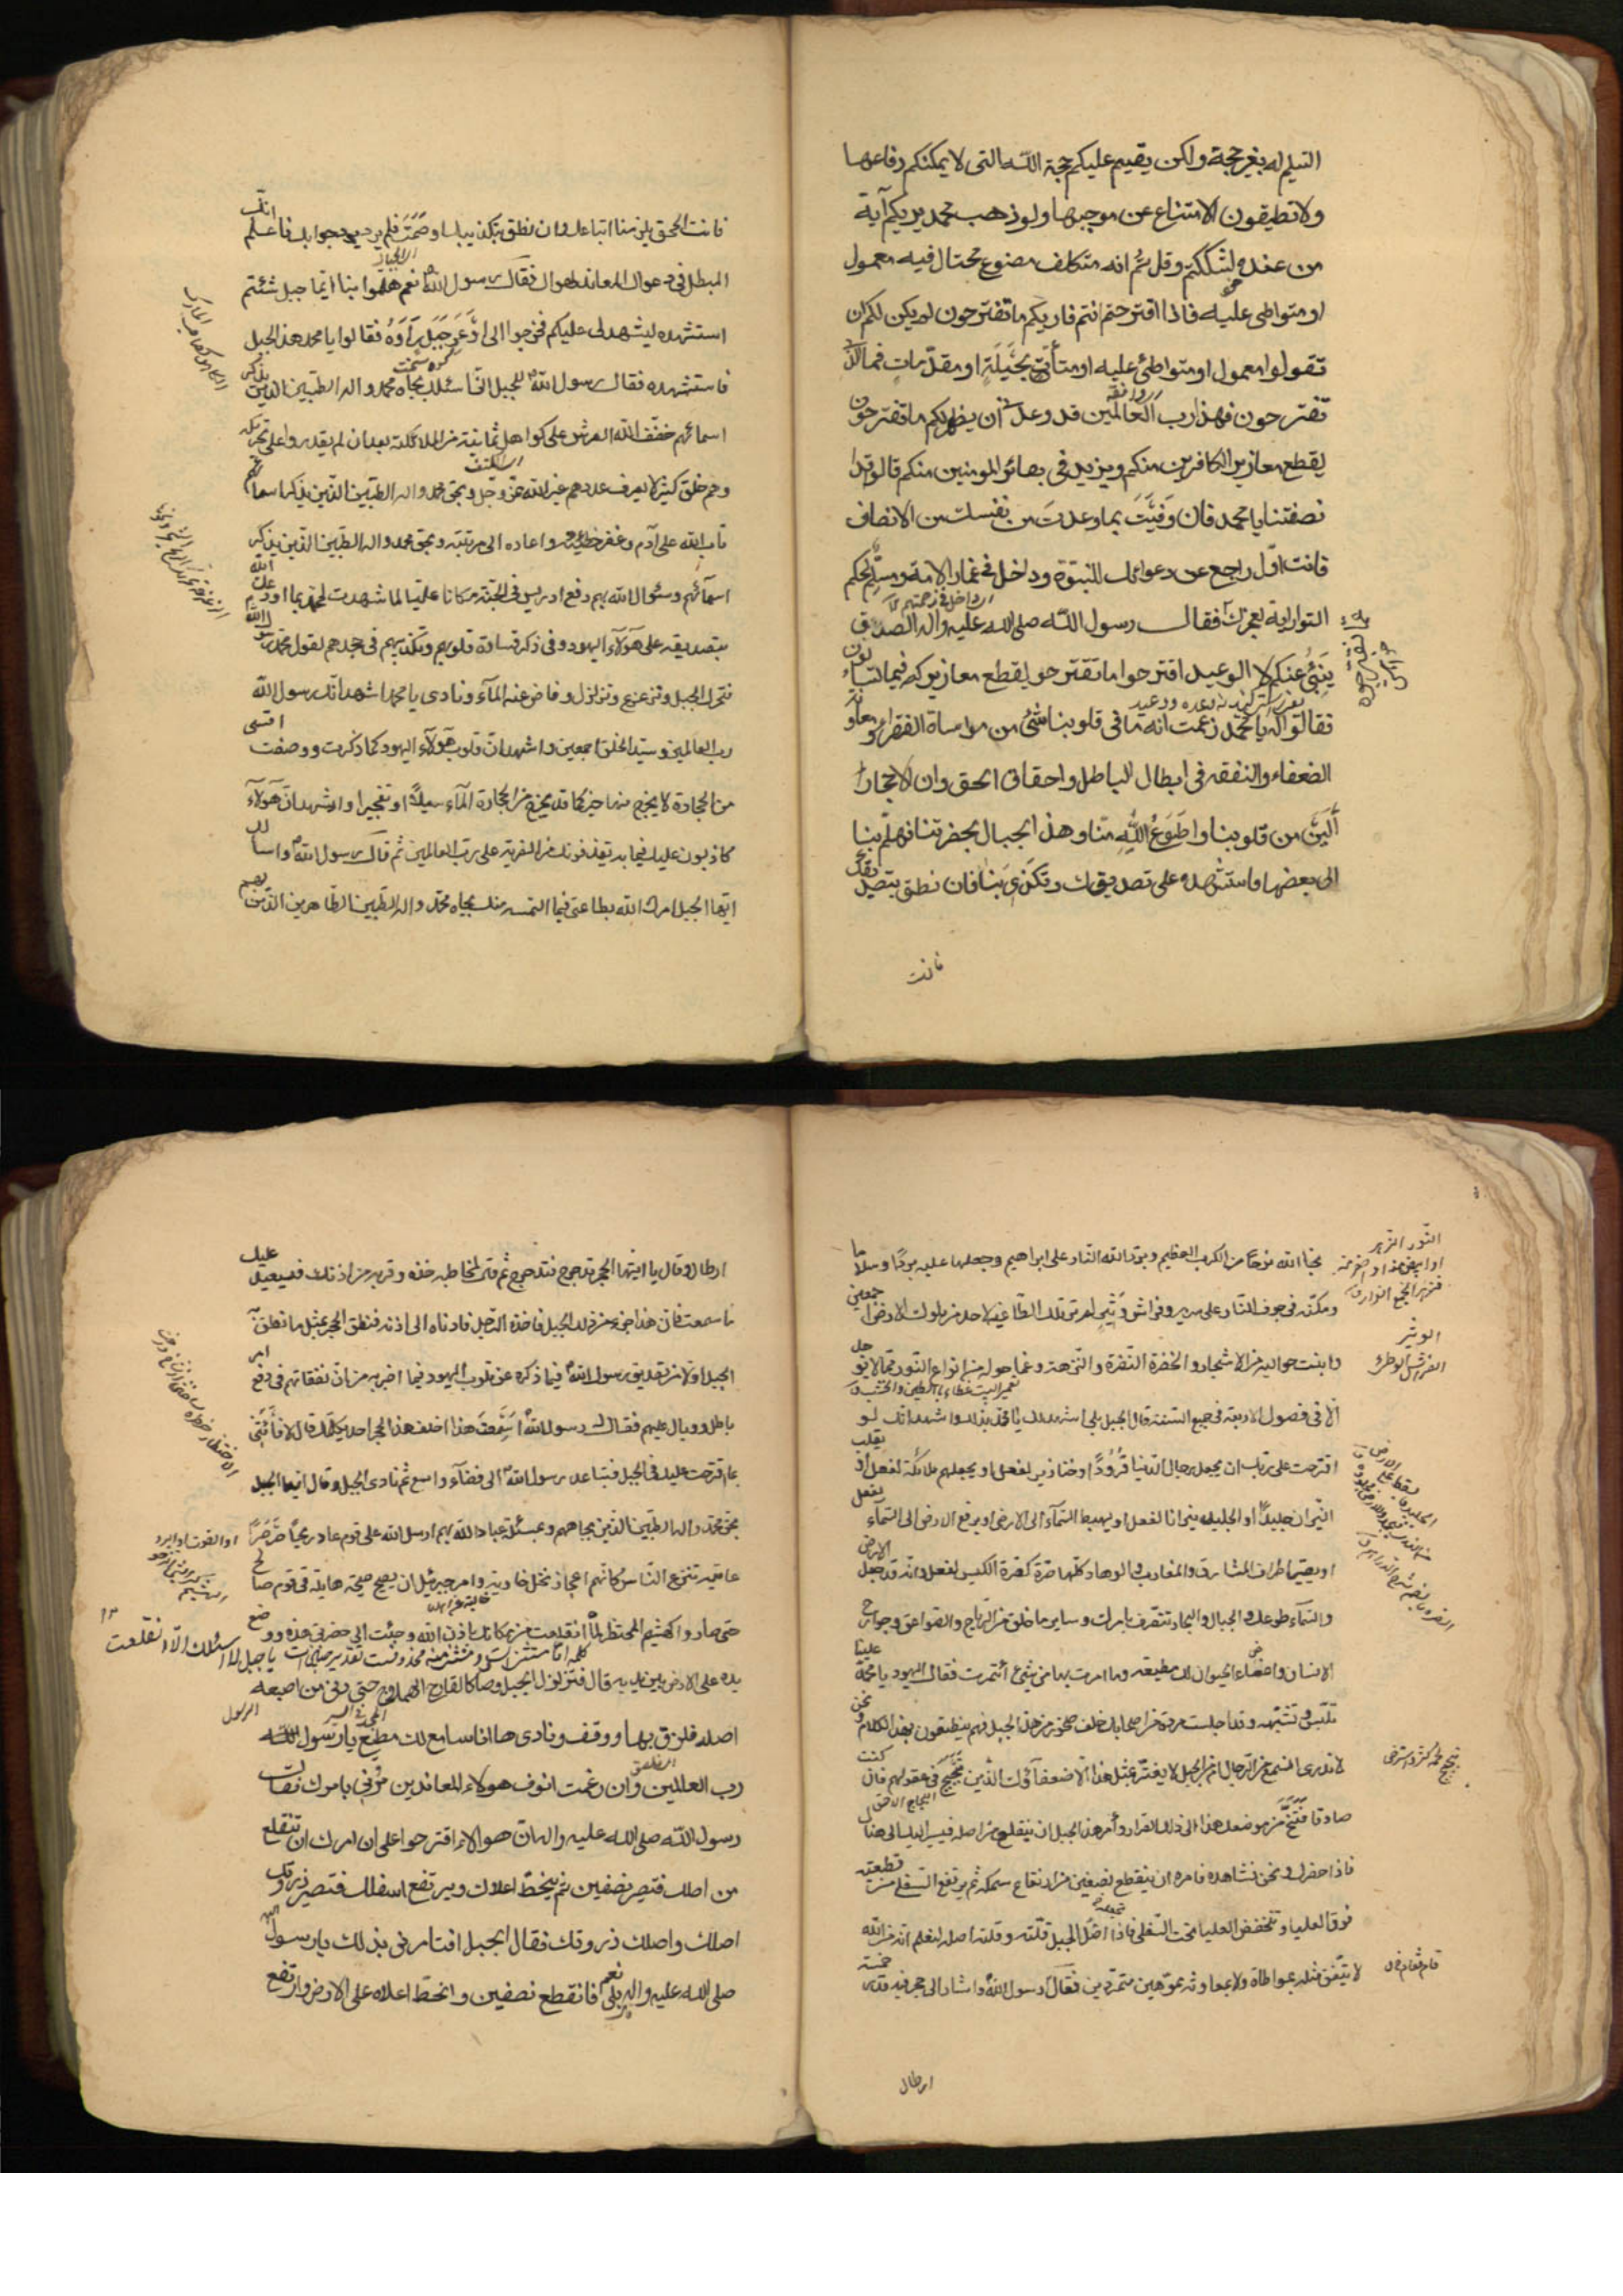 التسليم له بغير حجة ولكن يقيم عليكم حجة الله التي لا يمكنكم دفاعها
ولا تطيقون الامتناع عن موجبها ولو ذهب محمد يريكم آية
من عنده لشككتم وقلتم انه متكلف مصنوع محتال فيه معمول
او متواطى عليه فاذا اقترحتم انتم فاريكم ما تقترحون لم يكن لكم ان
تقولوا معمول او متواطئ عليه او متأتى بحيلة او مقدمات فما الذى
تقترحون فهذا رب العالمين قد وعدنى ان يظهر لكم ما تقترحون
ليقطع معاذير الكافرين منكم ويزيد فى بصائر المومنين منكم قالوا قد ا
نصفتنا يا محمد فان وفيت بما وعدت من نفسك من الانصاف
فانت اول راجع عن دعواك للنبوة وداخل فى غمار الامة ومسلم لحكم
التوراة لعجزك فقال رسول الله صلى الله عليه واله الصدق
ينبئ عنكم لا الوعيد اقترحوا ما تقترحو ليقطع معاذيركم فيما تسألون
فقالوا له يا محمد زعمت انه ما فى قلوبنا شئ من مواساة الفقراء ومعاونة
الضعفاء والنفقه فى ابطال الباطل واحقاق الحق وان الاحجار
ألين من قلوبنا واطوع لله منا وهذه الجبال بحضرتنا فهلم بنا
الى بعضها فاستشهده على تصديقك وتكذيبنا فان نطق بتصديقك
فانت
فانت المحق يلزمنا اتباعك وان نطق بتكذيبك او صمت فلم يرد جوابك فاعلم انك
المبطل فى دعواك المعاند لهواك فقال رسول الله نعم هلموا بنا الى ايما جبل شئتم
استشهده ليشهد لى عليكم فخرجوا الى اوعر جبل رأوه فقالوا يا محمد هذا الجبل
فاستشهده فقال رسول الله للجبل انى اسئلك بجاه محمد واله الطيبين الذين بذكر
اسمائهم خفف الله العرش على كواهل ثمانية من الملائكة بعد ان لم يقدروا على تحريكه
وهم خلق كثير لا يعرف عددهم غير الله عز وجل وبحق محمد واله الطيبين الذين بذكر اسمائهم
تاب الله على آدم وغفر خطيئته واعاده الى مرتبته وبحق محمد واله الطيبين الذين بذكر
اسمآئهم وسئوال الله بهم رفع ادريس فى الجنة مكانا عليا لما شهدت لمحمد بما اودعك الله
بتصديقه على هولآء اليهود فى ذكر قساوة قلوبهم وتكذيبهم فى جحدهم لقول محمد رسول الله
فتحرك الجبل وتزعزع وتزلزل وفاض عنه المآء ونادى يا محمد اشهد انك رسول الله
رب العالمين وسيد الخلق اجمعين واشهد ان قلوب هولآء اليهود كما ذكرت ووصفت اقسى
من الحجارة لا يخرج منها خير كما قد يخرج من الحجارة المآء سيلا او تفجيرا واشهد ان هولآء
كاذبون عليك فيما به يقذفونك من الفرية على رب العالمين ثم قال رسول الله واسألك
ايها الجبل امرك الله بطاعتى فيما التمسه منك بجاه محمد واله الطيبين الطاهرين الذين بهم
نجا الله نوحا من الكرب العظيم وبرد الله النار على ابراهيم وجعلها عليه بردا وسلاما
ومكنه فى جوف النار على سرير وفراش وثير لم ير تلك الطاغية لاحد من ملوك الارض اجمعين
وانبت حواليه من الاشجار الخضرة النضرة والنزهة وغما حوله من انواع النور مما لا يوجد
الا فى فصول الاربعة فى جميع السنة قال الجبل بلى اشهد لك يا محمد بذلك واشهد انك لو
اقترحت على ربك ان يجعل رجال الدنيا قرودا وخنازير لفعل او يجعلهم ملائكة لفعل او يقلب
النيران جليدا او الجليد نيرانا لفعل او يهبط السمآء الى الارض او يرفع الارض الى السمآء لفعل
او يصير اطراف المشارق والمغارب والوهاد كلها صرة كصرة الكيس لفعل وانه قد جعل الارض
والسمآء طوعك والجبال والبحار تنصرف بامرك وساير ما خلق من الرياح والصواعق وجوارح
الانسان واعضاء الحيوان لك مطيعة وما امرت بها من شئ ائتمرت فقال اليهود يا محمد علينا
تلبس وتشبه وقد اجلست مردة من اصحابك خلف صخور من هذا الجبل فهم ينطقون بهذا الكلام ونحن
لا ندرى انسمع من الرجال ام من الجبل لا يغتر بمثل هذا الا ضعفآؤك الذين تبحبح فى عقولهم فان كنت
صادقا فتنح من موضعك هذا الى ذلك القرار وأمر هذا الجبل ان ينقلع من اصله فيسير اليك الى هنا
فاذا حضرك ونحن نشاهده فامره ان ينقطع نصفين من ارتفاع سمكه ثم يرتفع السفلى من قطعتيه
فوق العليا وتنخفض العليا تحت السفلى فاذا اصل الجبل قلته وقلته اصله لنعلم انه من الله
لا يتفق مثله بمواطاة ولا بمعاونة مموهين متمردين فقال رسول الله واشار الى حجر فيه قدر خمسة
ارطال
ارطال وقال يا ايها الحجر تدحرج فتدحرج ثم قال لمخاطبه خذه وقربه من اذنك فسيعيد عليك
ما سمعت فان هذا جزء من ذلك الجبل فاخذه الرجل فادناه الى اذنه فنطق الحجر بمثل ما نطق به
الجبل اولا من تصديق رسول الله فيما ذكره عن قلوب اليهود فيما اخبر به من ان نفقاتهم فى دفع امر
باطل ووبال عليهم فقال رسول الله اسمعت هذا اخلف هذا الحجر احد يكلمك قال لا فأتنى
بما اقترحت عليك فى الجبل فتباعد رسول الله الى فضآء واسع ثم نادى الجبل وقال ايها الجبل
بحق محمد واله الطيبين الذين بجاههم وبمسئلة عباد الله بهم ارسل الله على قوم عاد ريحا صرصرا
عاتية تنزع الناس كانهم اعجاز نخل خاوية وامر جبرئيل ان يصيح صيحة هايلة فى قوم صالح
حتى صاروا كهشيم المحتظر لما انقلعت من مكانك باذن الله وجئت الى حضرتى هذه ووضع
يده على الارض بين يديه قال فتزلزل الجبل وصار كالقارح الهملاج حتى دنى من اصبعه
اصله فلزق بها ووقف ونادى ها انا سامع لك مطيع يا رسول الله
رب العالمين وان رغمت انوف هولاء المعاندين مرنى بامرك فقال
رسول الله صلى الله عليه واله ان هولاء اقترحوا على ان امرك ان تنقلع
من اصلك فتصير نصفين ثم ينحط اعلاك ويرتفع اسفلك فتصير ذروتك
اصلك واصلك ذروتك فقال الجبل افتامرنى بذلك يا رسول
صلى الله عليه واله نعم بلى فانقطع نصفين وانحط اعلاه على الارض وارتفع